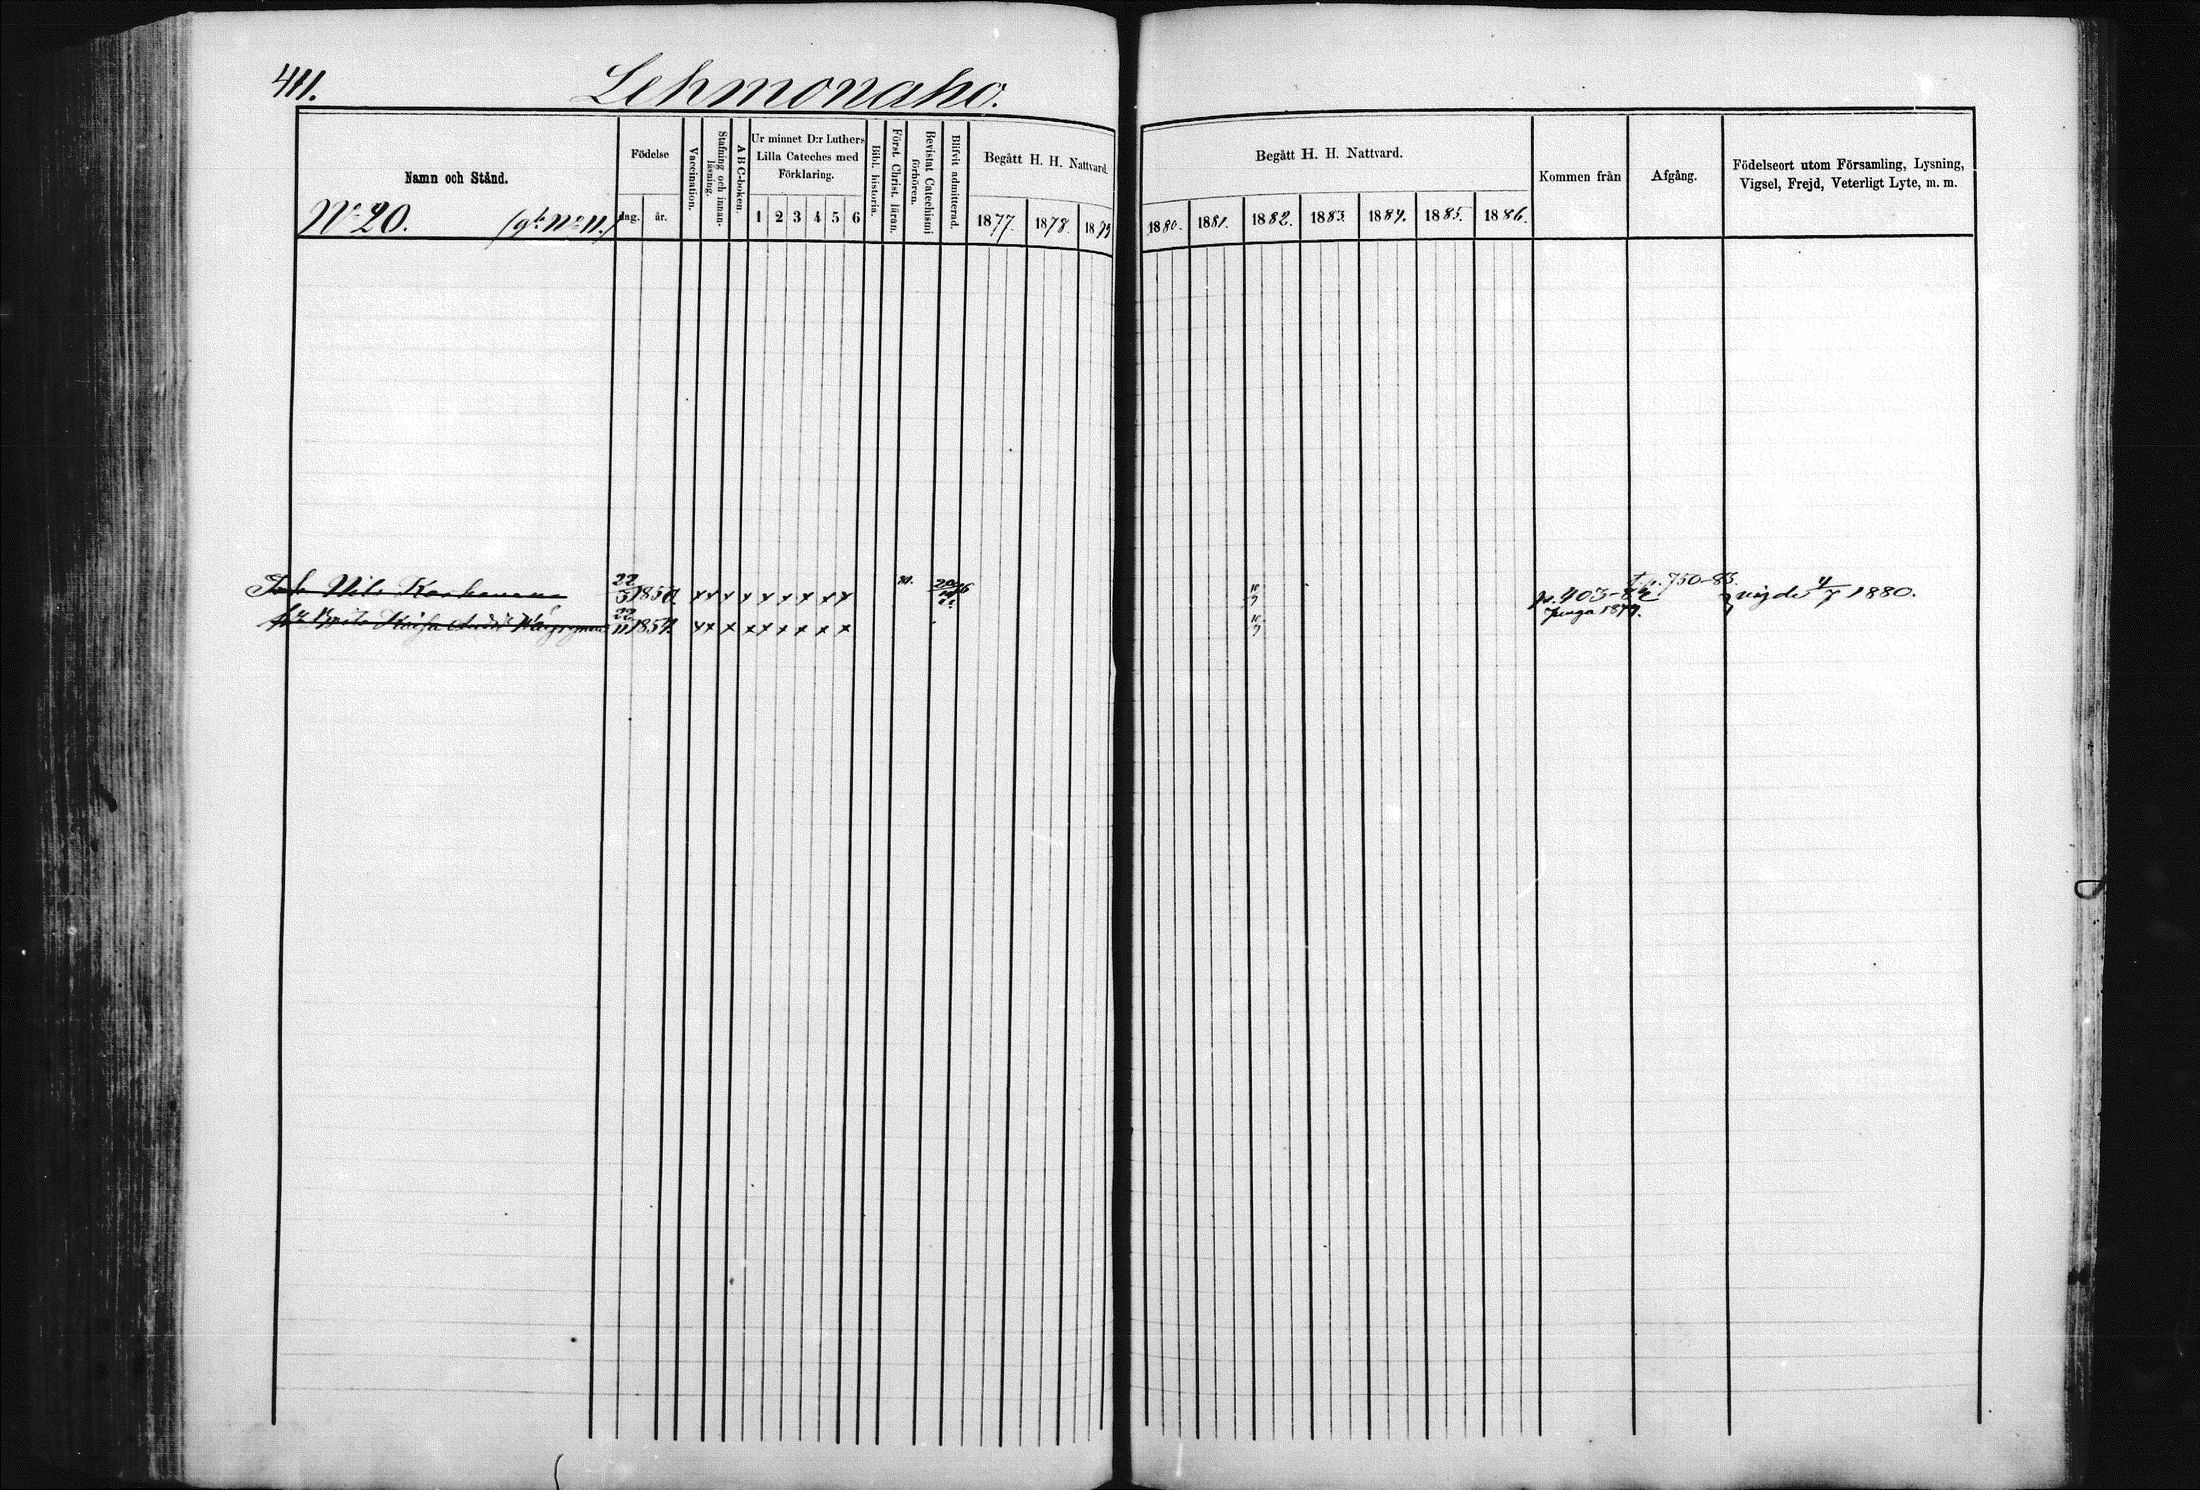 411.
Lehmonaho.
Namn och Stånd.
No 20. (gt. No 11.)
Födelse
dag. år.
Vaccination.
Stafning och innan-
läsning.
A B C-boken.
Ur minnet D:r Luthers
Lilla Cateches med
Förklaring.
1 2 3 4 5 6
Bibl. historia.
Först. Christ. läran.
Bevistat Catechismi
förhören.
Blifvit admitterad.
Begått H. H. Nattvard.
1877. 1878. 1879
Begått H. H. Nattvard.
1880. 1881. 1882. 1883 1884. 1885. 1886.
Kommen från
Afgång.
Födelseort utom Församling, Lysning,
Vigsel, Frejd, Veterligt Lyte, m. m.
Nils 22/3 1850. x x x x x x x x x 10/9 p. 403-82 t. p. 750-83. vigde 4/7 1880.
Brita Kaisa 22/11 1857 x x x x x x x x x 10/9 1879.